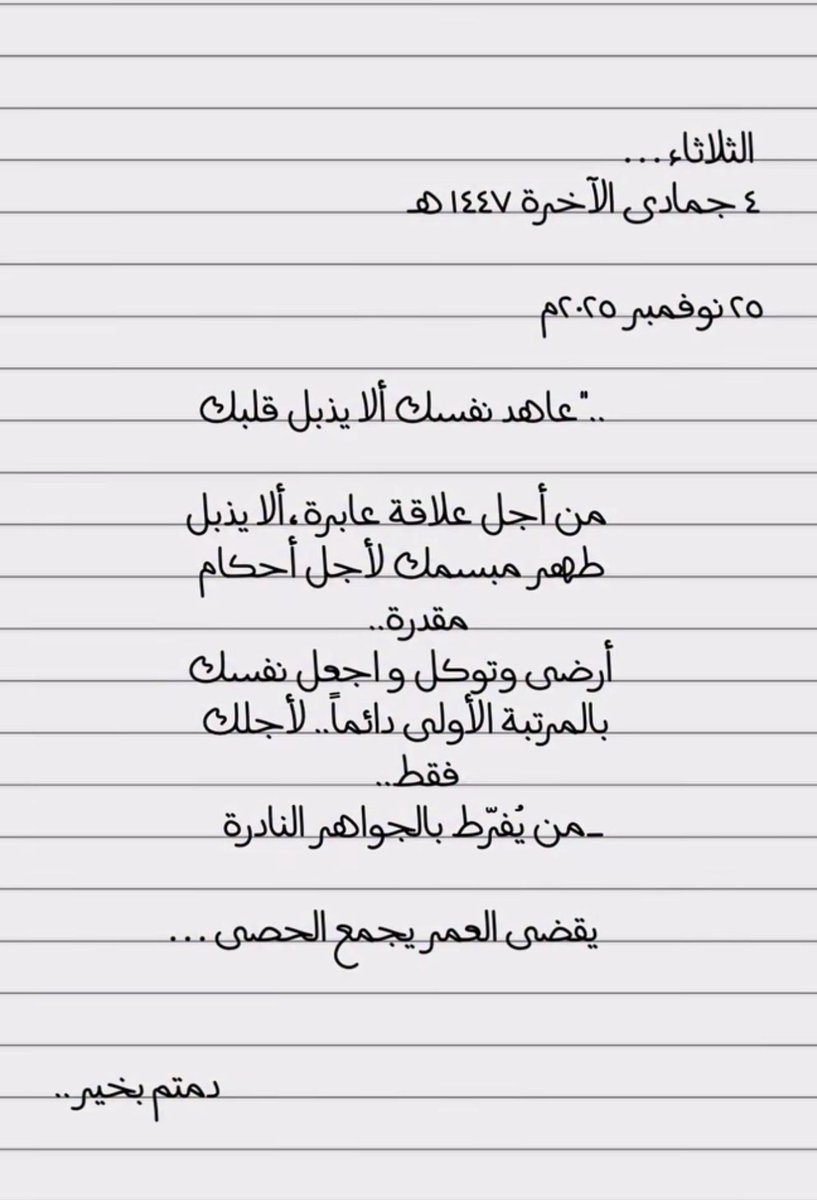 الثلاثاء...
٤ جمادى الآخرة ١٤٤٧ هـ
٢٥ نوفمبر ٢٠٢٥م
.."عاهد نفسك ألا يذبل قلبك
من أجل علاقة عابرة،ألا يذبل
طهر مبسمك لأجل أحكام
مقدرة..
أرضى وتوكل و اجعل نفسك
بالمرتبة الأولى دائماً.. لأجلك
فقط..
_من يُفرّط بالجواهر النادرة
يقضى العمر يجمع الحصى ...
دمتم بخير..